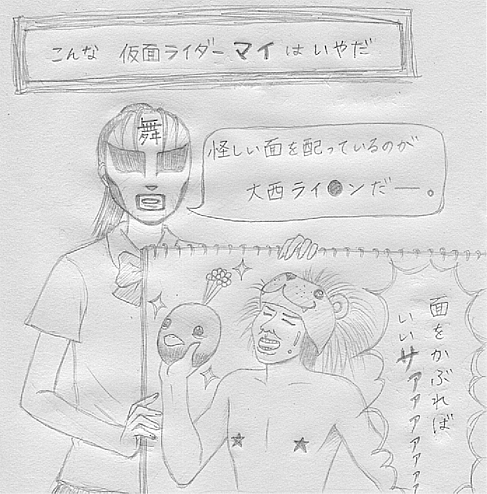 こんな 仮面ライダーマイはいやだ
舞
怪しい面を配っているのが
大西ライ●ンだー。
面をかぶれば
いいサァァァァァァァ